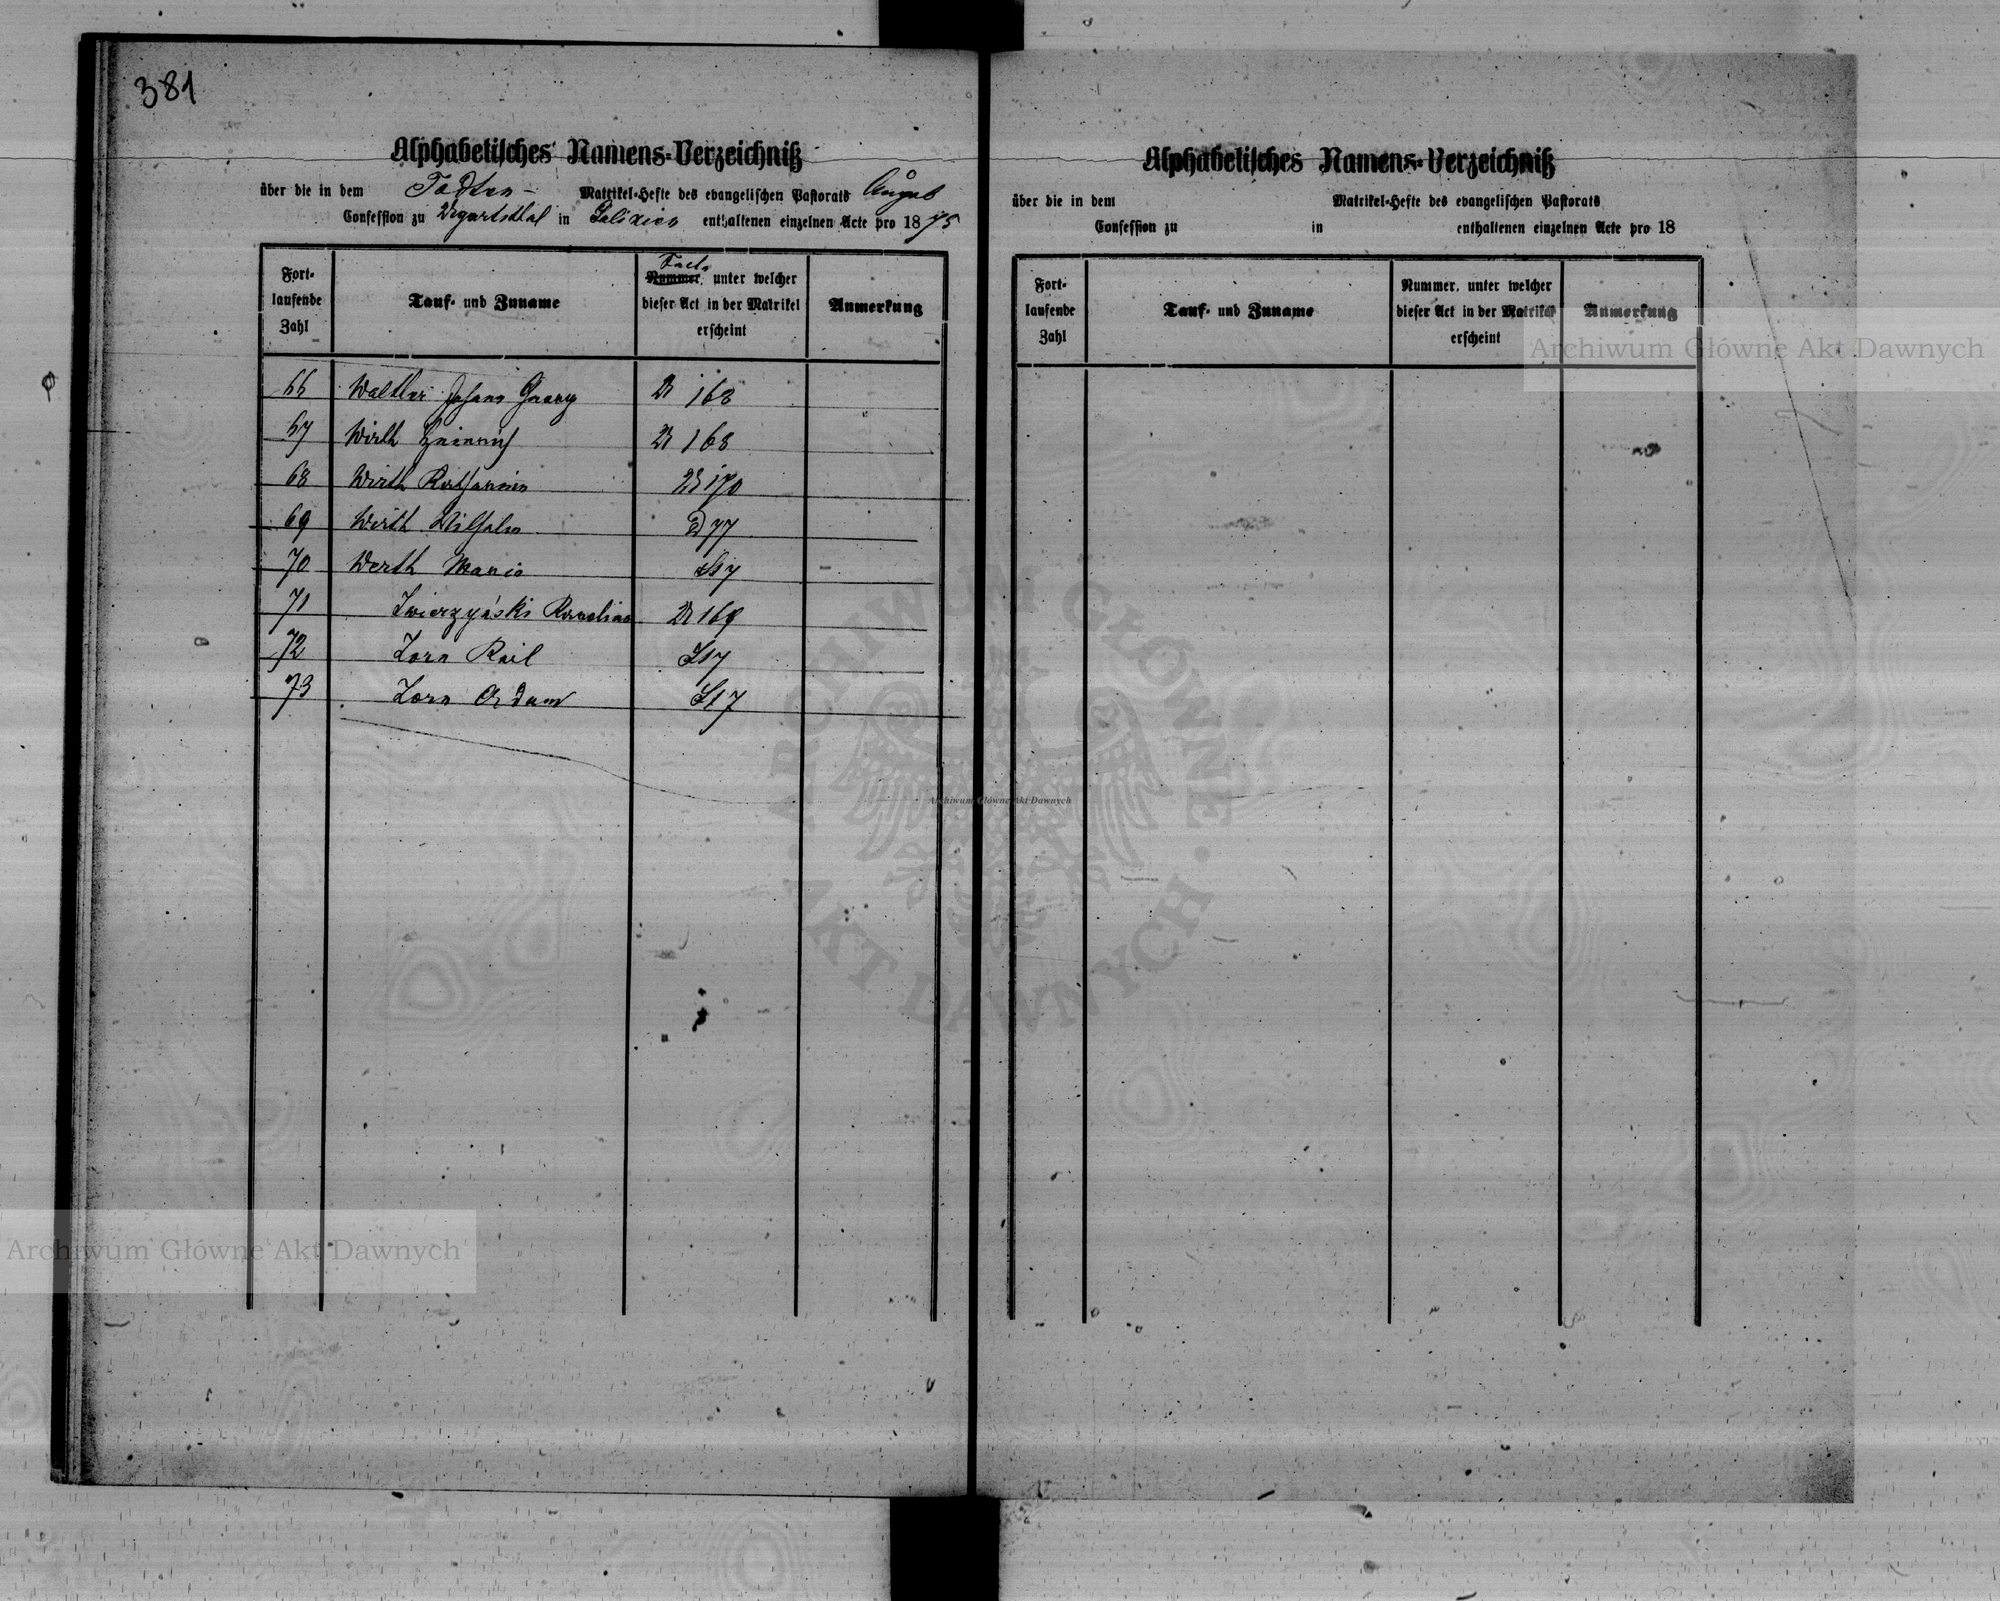 381
Alphabetisches Namens-Verzeichniß
über die in dem Todten- Matrikel-Hefte des evangelischen Pastorats Augsb
Confession zu Ugartsthal in Galizien enthaltenen einzelnen Acte pro 1875
Fort-
laufende
Zahl
Tauf- und Zuname
Nummer, unter welcher
dieser Act in der Matrikel
erscheint
Anmerkung
66 Walther Johann Georg 168
67 Wirth Heinrich 168
68 Wirth Katharina 170
69 Werth Wilhelm 77
70 Werth Maria S17
71 Zwierzyński Karolina 169
72 Zorn Karl S17
73 Zorn Adam S17
Alphabetisches Namens-Verzeichniß
über die in dem Matrikel-Hefte des evangelischen Pastorats
Confession zu in enthaltenen einzelnen Acte pro 18
Fort-
laufende
Zahl
Tauf- und Zuname
Nummer, unter welcher
dieser Act in der Matrikel
erscheint
Anmerkung
Archiwum Główne Akt Dawnych
ARCHIWUM GŁÓWNE · AKT DAWNYCH ·
Archiwum Główne Akt Dawnych
Archiwum Główne Akt Dawnych